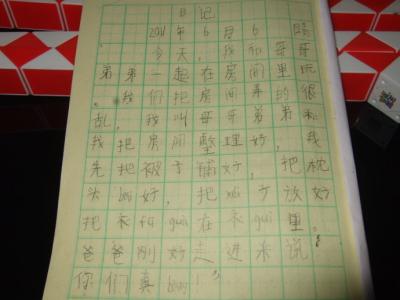 日记
2011年6月6 晴
今天,我和哥哥
弟弟一起在房间里玩
。我们把房间弄的很
乱,我叫哥哥弟弟和
我把房间整理好,我
先把被子铺好,把枕
头bai好,把xié子放好
把衣 gua在衣gui里。
爸爸刚好走进来说:
你们真bang!"